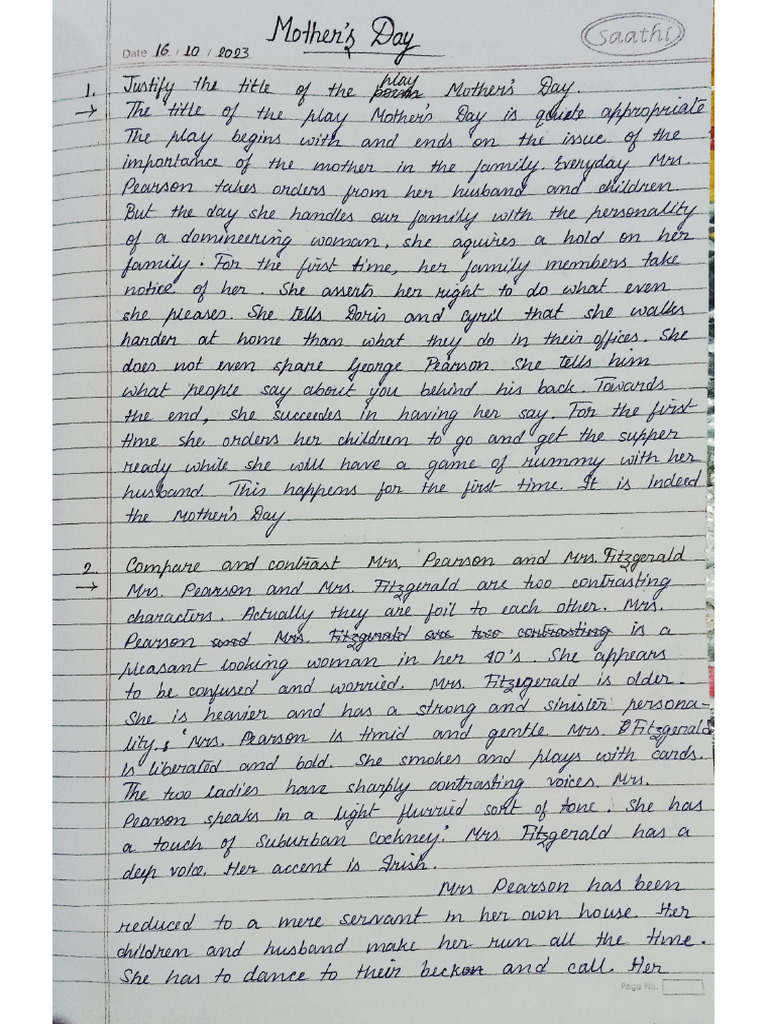 Mother's Day
Date 16 / 10 / 2023
saathi
1. Justify the title of the poem play Mother's Day.
→ The title of the play Mother's Day is quiete appropriate
The play begins with and ends on the issue of the
importance of the mother in the family. Everyday Mrs.
Pearson takes orders from her husband and children.
But the day she handles our family with the personality
of a domineering woman, she aquires a hold on her
family. For the first time, her family members take
notice of her. She asserts her right to do what even
she pleases. She tells Doris and Cyril that she walks
harder at home than what they do in their offices. She
does not even spare George Pearson. She tells him
what people say about you behind his back. Towards
the end, she succeedes in having her say. For the first
time she orders her children to go and get the supper
ready while she will have a game of rummy with her
husband. This happens for the first time. It is indeed
the Mother's Day.
2. Compare and contrast Mrs. Pearson and Mrs. Fitzgerald
→ Mrs. Pearson and Mrs. Fitzgerald are two contrasting
characters. Actually they are foil to each other. Mrs.
Pearson and Mrs. Fitzgerald are two contrasting is a
pleasant looking woman in her 40's. She appears
to be confused and worried. Mrs. Fitzgerald is older.
She is heavier and has a strong and sinister persona-
lity. Mrs. Pearson is timid and gentle. Mrs. Fitzgerald
is liberated and bold. She smokes and plays with cards.
The two ladies have sharply contrasting voices. Mrs.
Pearson speaks in a light flurried sort of tone. She has
a touch of Suburban Cockney. Mrs. Fitzgerald has a
deep voice. Her accent is Irish.
Mrs Pearson has been
reduced to a mere servant in her own house. Her
children and husband make her run all the time.
She has to dance to their beckon and call. Her
Page No.